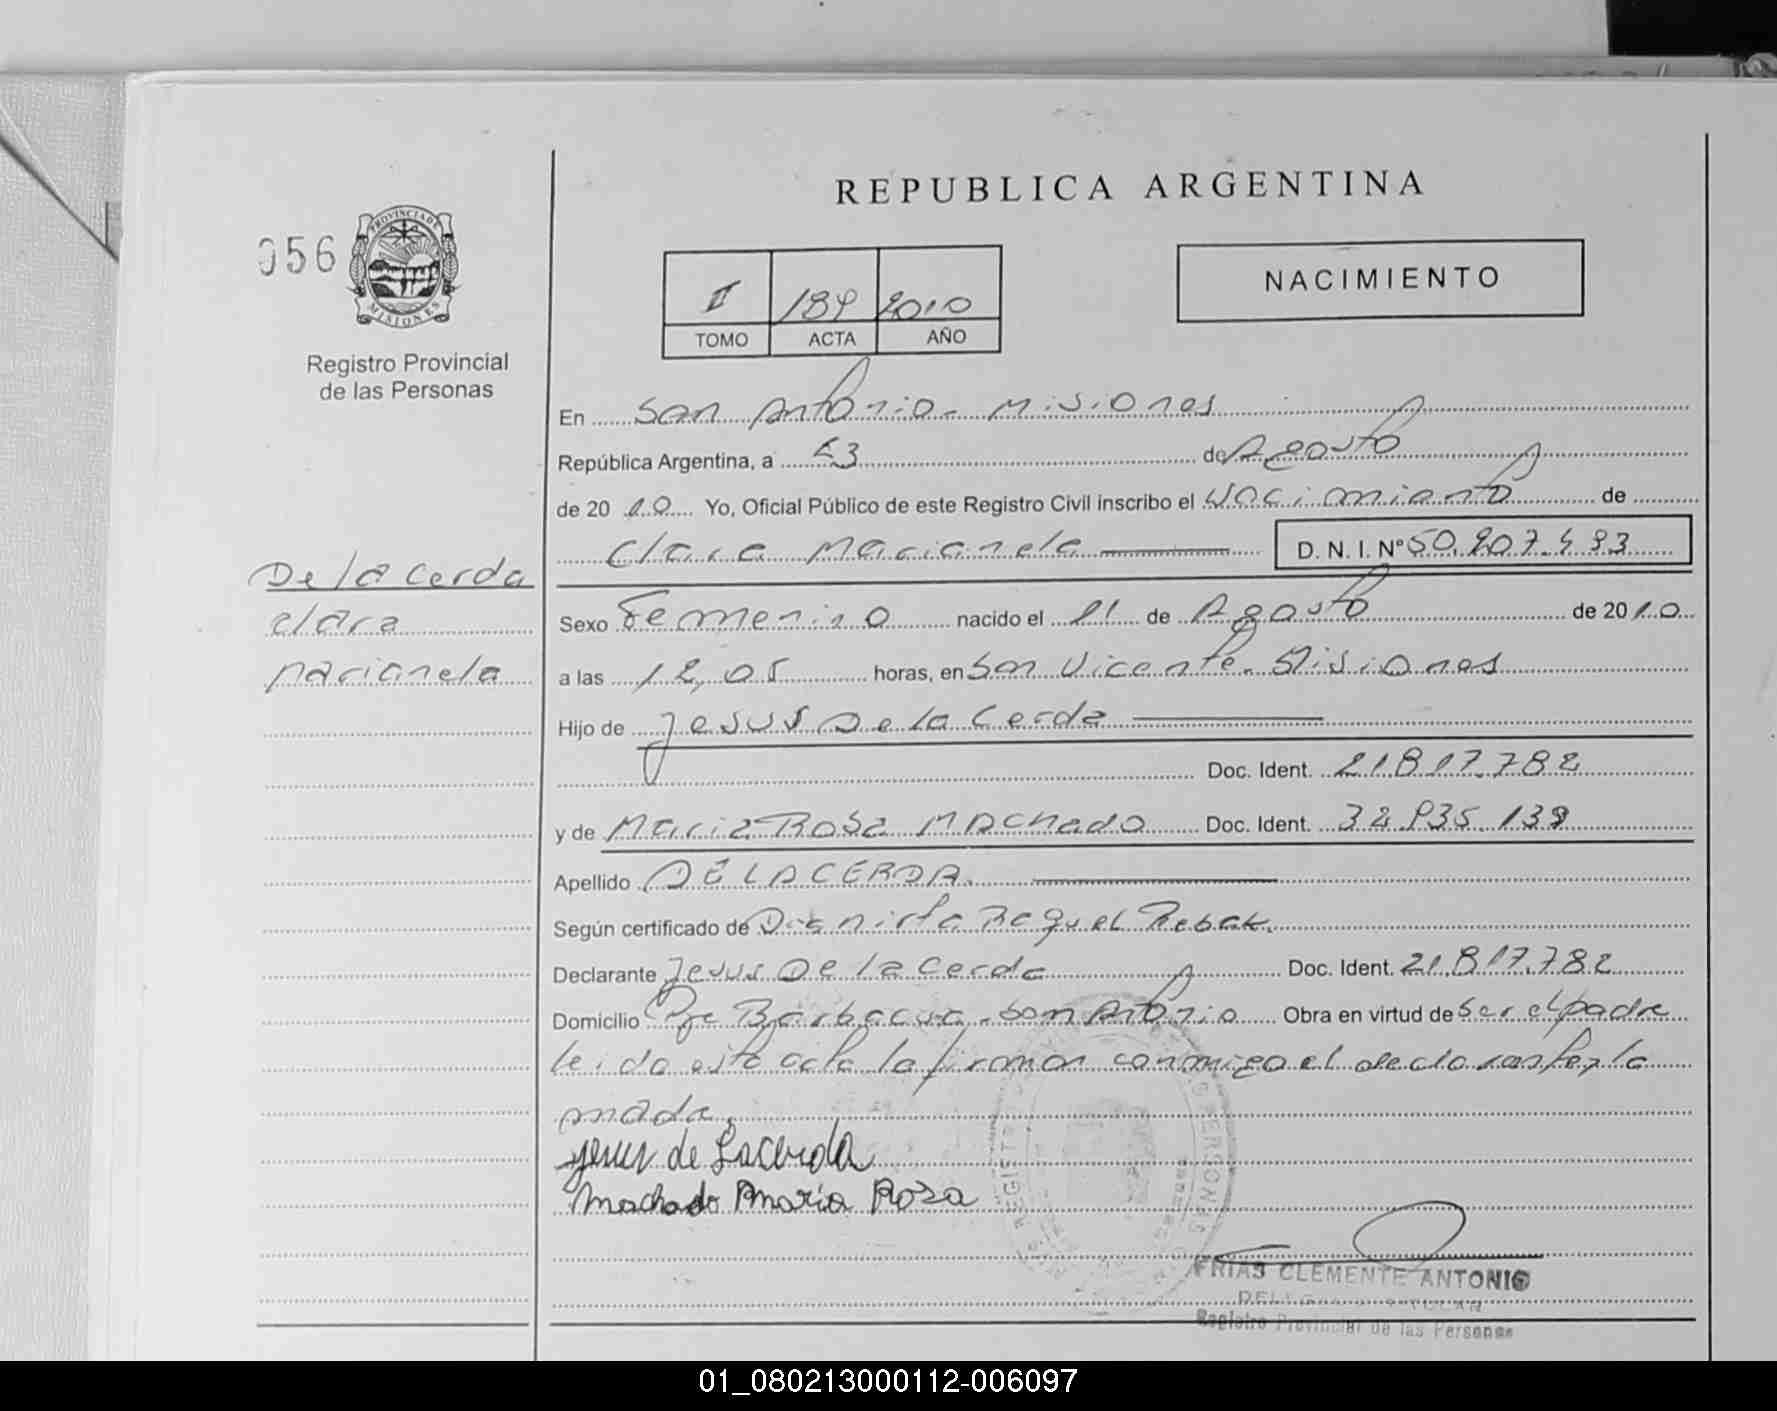 REPUBLICA ARGENTINA
056
PROVINCIA DE
MISIONES
Registro Provincial
de las Personas
II 189 2010
TOMO ACTA AÑO
NACIMIENTO
En San Antonio - Misiones
República Argentina, a 23 de Agosto
de 2010 Yo, Oficial Público de este Registro Civil inscribo el Nacimiento de
Clara Marianela D.N.I. Nº 50.207.493
De la Cerda
Clara
Marianela
Sexo Femenino nacido el 11 de Agosto de 2010
a las 12,05 horas, en San Vicente - Misiones
Hijo de Jesus De la Cerda
Doc. Ident. 21.817.782
y de Maria Rosa Machado Doc. Ident. 32.935.139
Apellido DE LA CERDA.
Según certificado de Raquel Rebak.
Declarante Jesus De la Cerda Doc. Ident. 21.817.782
Domicilio Pje Barbacua - San Antonio Obra en virtud de Ser el padre
leida esta acta la firman conmigo el declarante y la
madre.
Jesus de Lacerda
Machado Maria Rosa
FRIAS CLEMENTE ANTONIO
DELEGADO TITULAR
Registro Provincial de las Personas
01_080213000112-006097